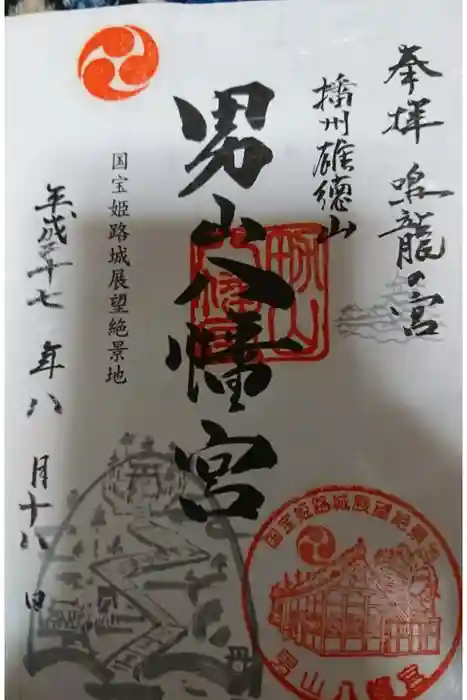 奉拝 鳴龍の宮
播州雄徳山
男山八幡宮
国宝姫路城展望絶景地
平成二十七年八月十八日
国宝姫路城展望絶景地
男山八幡宮